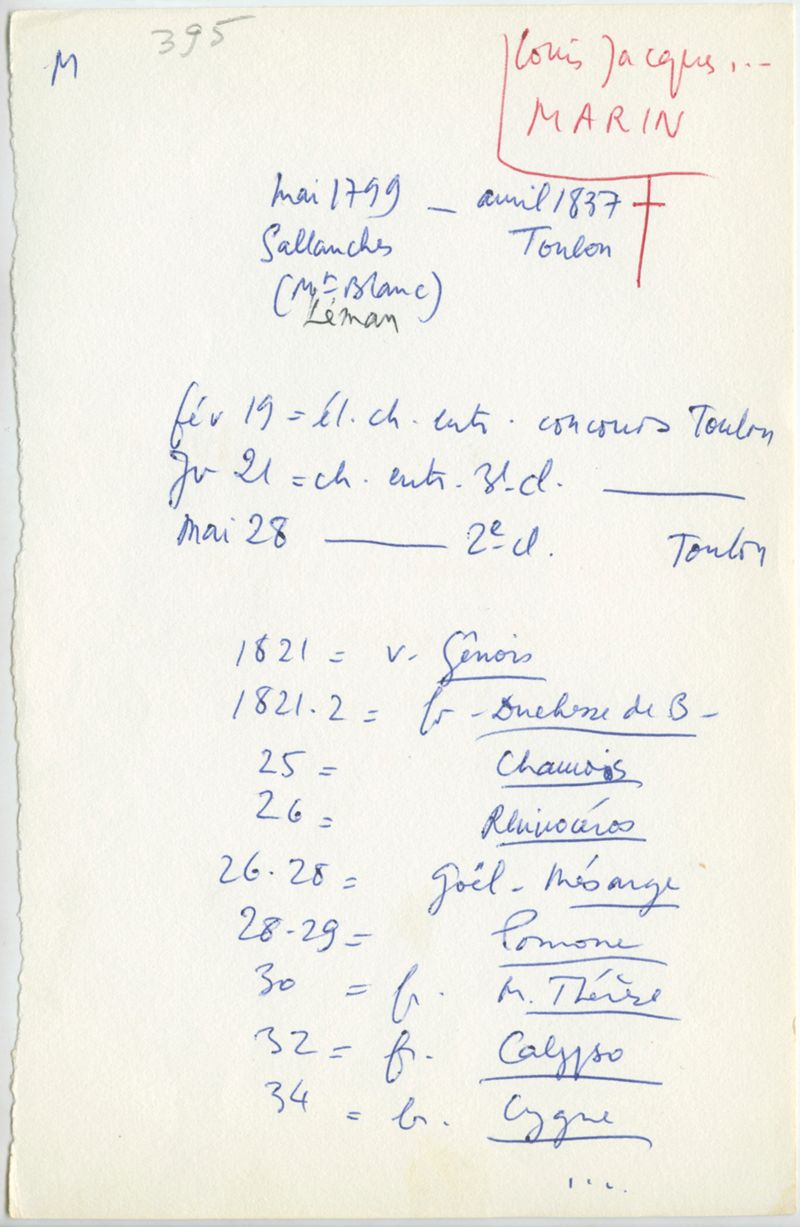 M
395
Louis Jacques...
MARIN
mai 1799 — avril 1837 †
Sallanches Toulon
(Mt Blanc)
Léman
fév 19 = él. ch. entr. concours Toulon
Jv 21 = ch. entr. 3e cl. ———
mai 28 ——— 2e cl. Toulon
1821 = v. Génois
1821.2 = fr - Duchesse de B -
25 = Chamois
26 = Rhinocéros
26.28 = goël - Mésange
28-29 = Pomone
30 = fr. M. Thérèse
32 = fr. Calypso
34 = b. Cygne
...